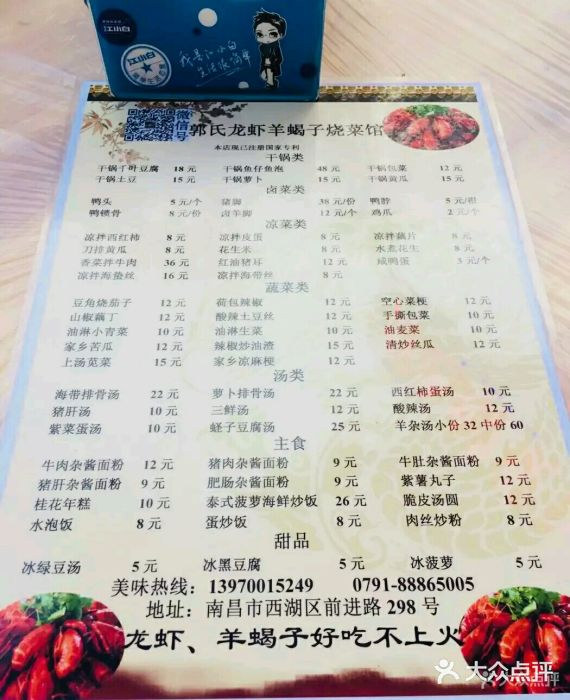 江小白
江小白
我是江小白
生活很简单
微信号
郭氏龙虾羊蝎子烧菜馆
本店现已注册国家专利
干锅类
干锅千叶豆腐 18 元 干锅鱼仔鱼泡 48 元 干锅包菜 12 元
干锅土豆 15 元 干锅萝卜 15 元 干锅黄瓜 15 元
卤菜类
鸭头 5 元/个 猪脚 38 元/份 鸭脖 5 元/根
鸭锁骨 8 元/份 卤羊脚 12 元/个 鸡爪 2 元/个
凉菜类
凉拌西红柿 8 元 凉拌皮蛋 8 元 凉拌藕片 8 元
刀拍黄瓜 8 元 花生米 8 元 水煮花生 8 元
香菜拌牛肉 36 元 红油猪耳 12 元 咸鸭蛋 3 元/个
凉拌海蜇丝 16 元 凉拌海带丝 8 元
蔬菜类
豆角烧茄子 12 元 荷包辣椒 12 元 空心菜梗 12 元
山椒藕丁 12 元 酸辣土豆丝 12 元 手撕包菜 12 元
油淋小青菜 12 元 油淋生菜 12 元 油麦菜 12 元
家乡苦瓜 12 元 辣椒炒油渣 15 元 清炒丝瓜 12 元
上汤苋菜 15 元 家乡凉麻梗 12 元
汤类
海带排骨汤 22 元 萝卜排骨汤 22 元 西红柿蛋汤 10 元
猪肝汤 10 元 三鲜汤 12 元 酸辣汤 12 元
紫菜蛋汤 10 元 蛏子豆腐汤 25 元 羊杂汤小份 32 中份 60
主食
牛肉杂酱面粉 12 元 猪肉杂酱面粉 9 元 牛肚杂酱面粉 9 元
猪肝杂酱面粉 9 元 肥肠杂酱面粉 9 元 紫薯丸子 12 元
桂花年糕 10 元 泰式菠萝海鲜炒饭 26 元 脆皮汤圆 12 元
水泡饭 8 元 蛋炒饭 8 元 肉丝炒粉 8 元
甜品
冰绿豆汤 5 元 冰黑豆腐 5 元 冰菠萝 5 元
美味热线：13970015249 0791-88865005
地址：南昌市西湖区前进路 298 号
龙虾、羊蝎子好吃不上火
大众点评
大众点评